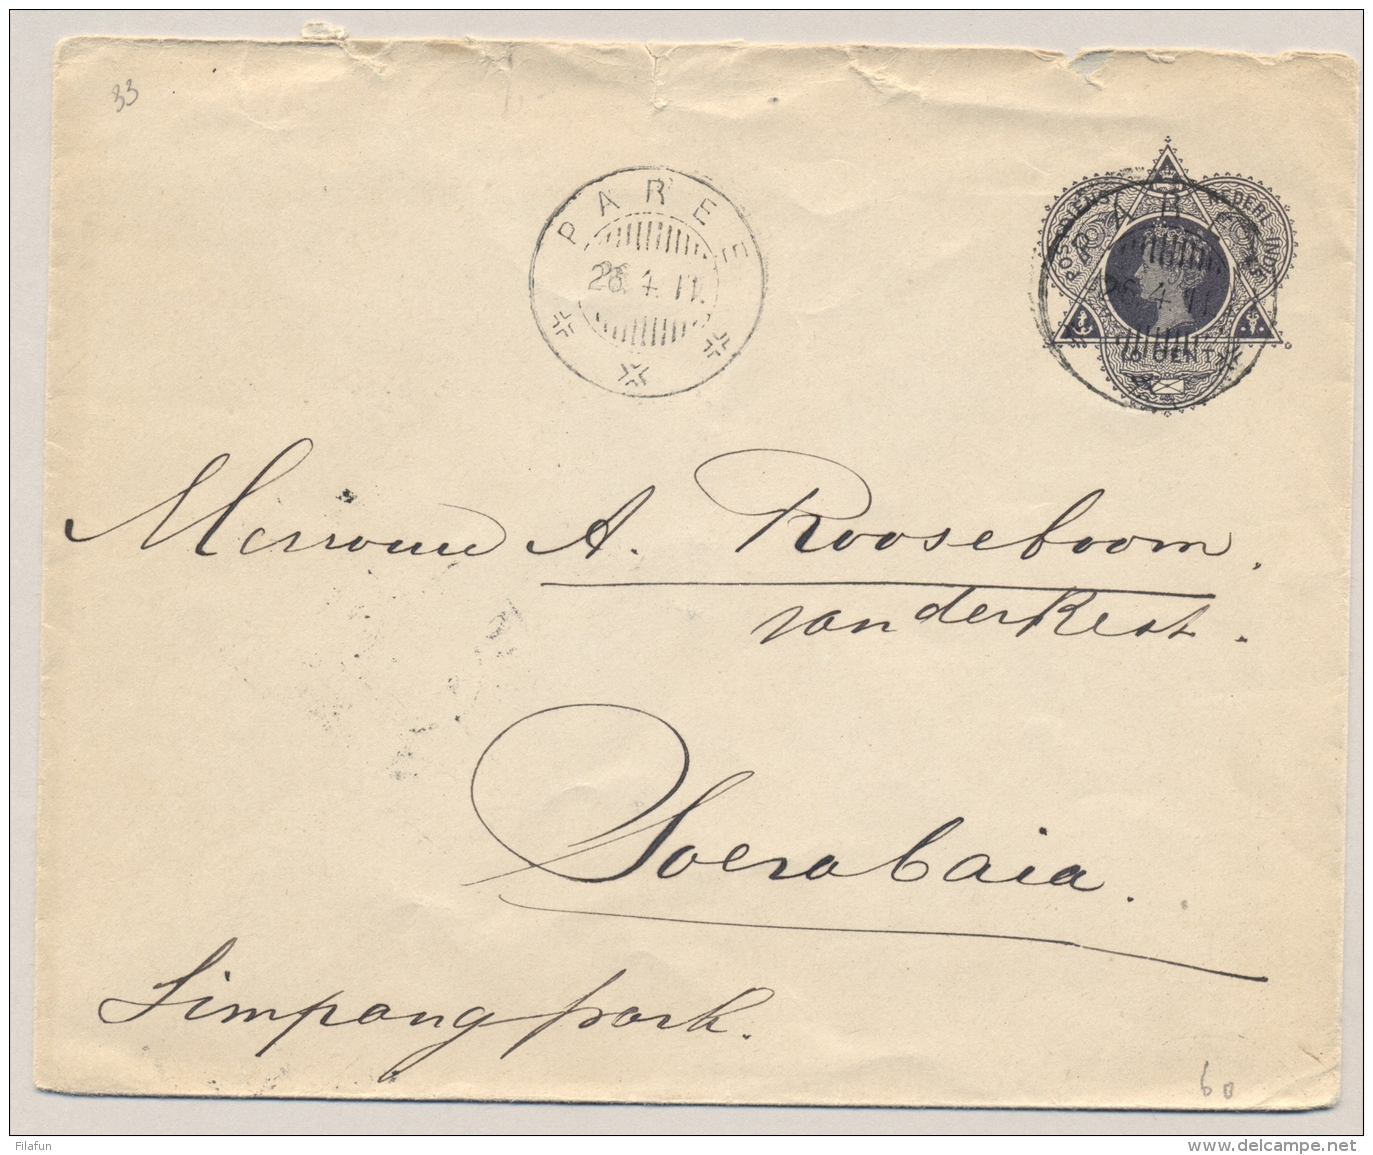 33
PAREE
26.4.11.
POSTDIENST NEDERL. INDIE
PAREE
26.4.11
10 CENT
Mevrouw A. Rooseboom.
van der Kest.
Soerabaia.
Simpangpark.
Filafun
www.delcampe.net